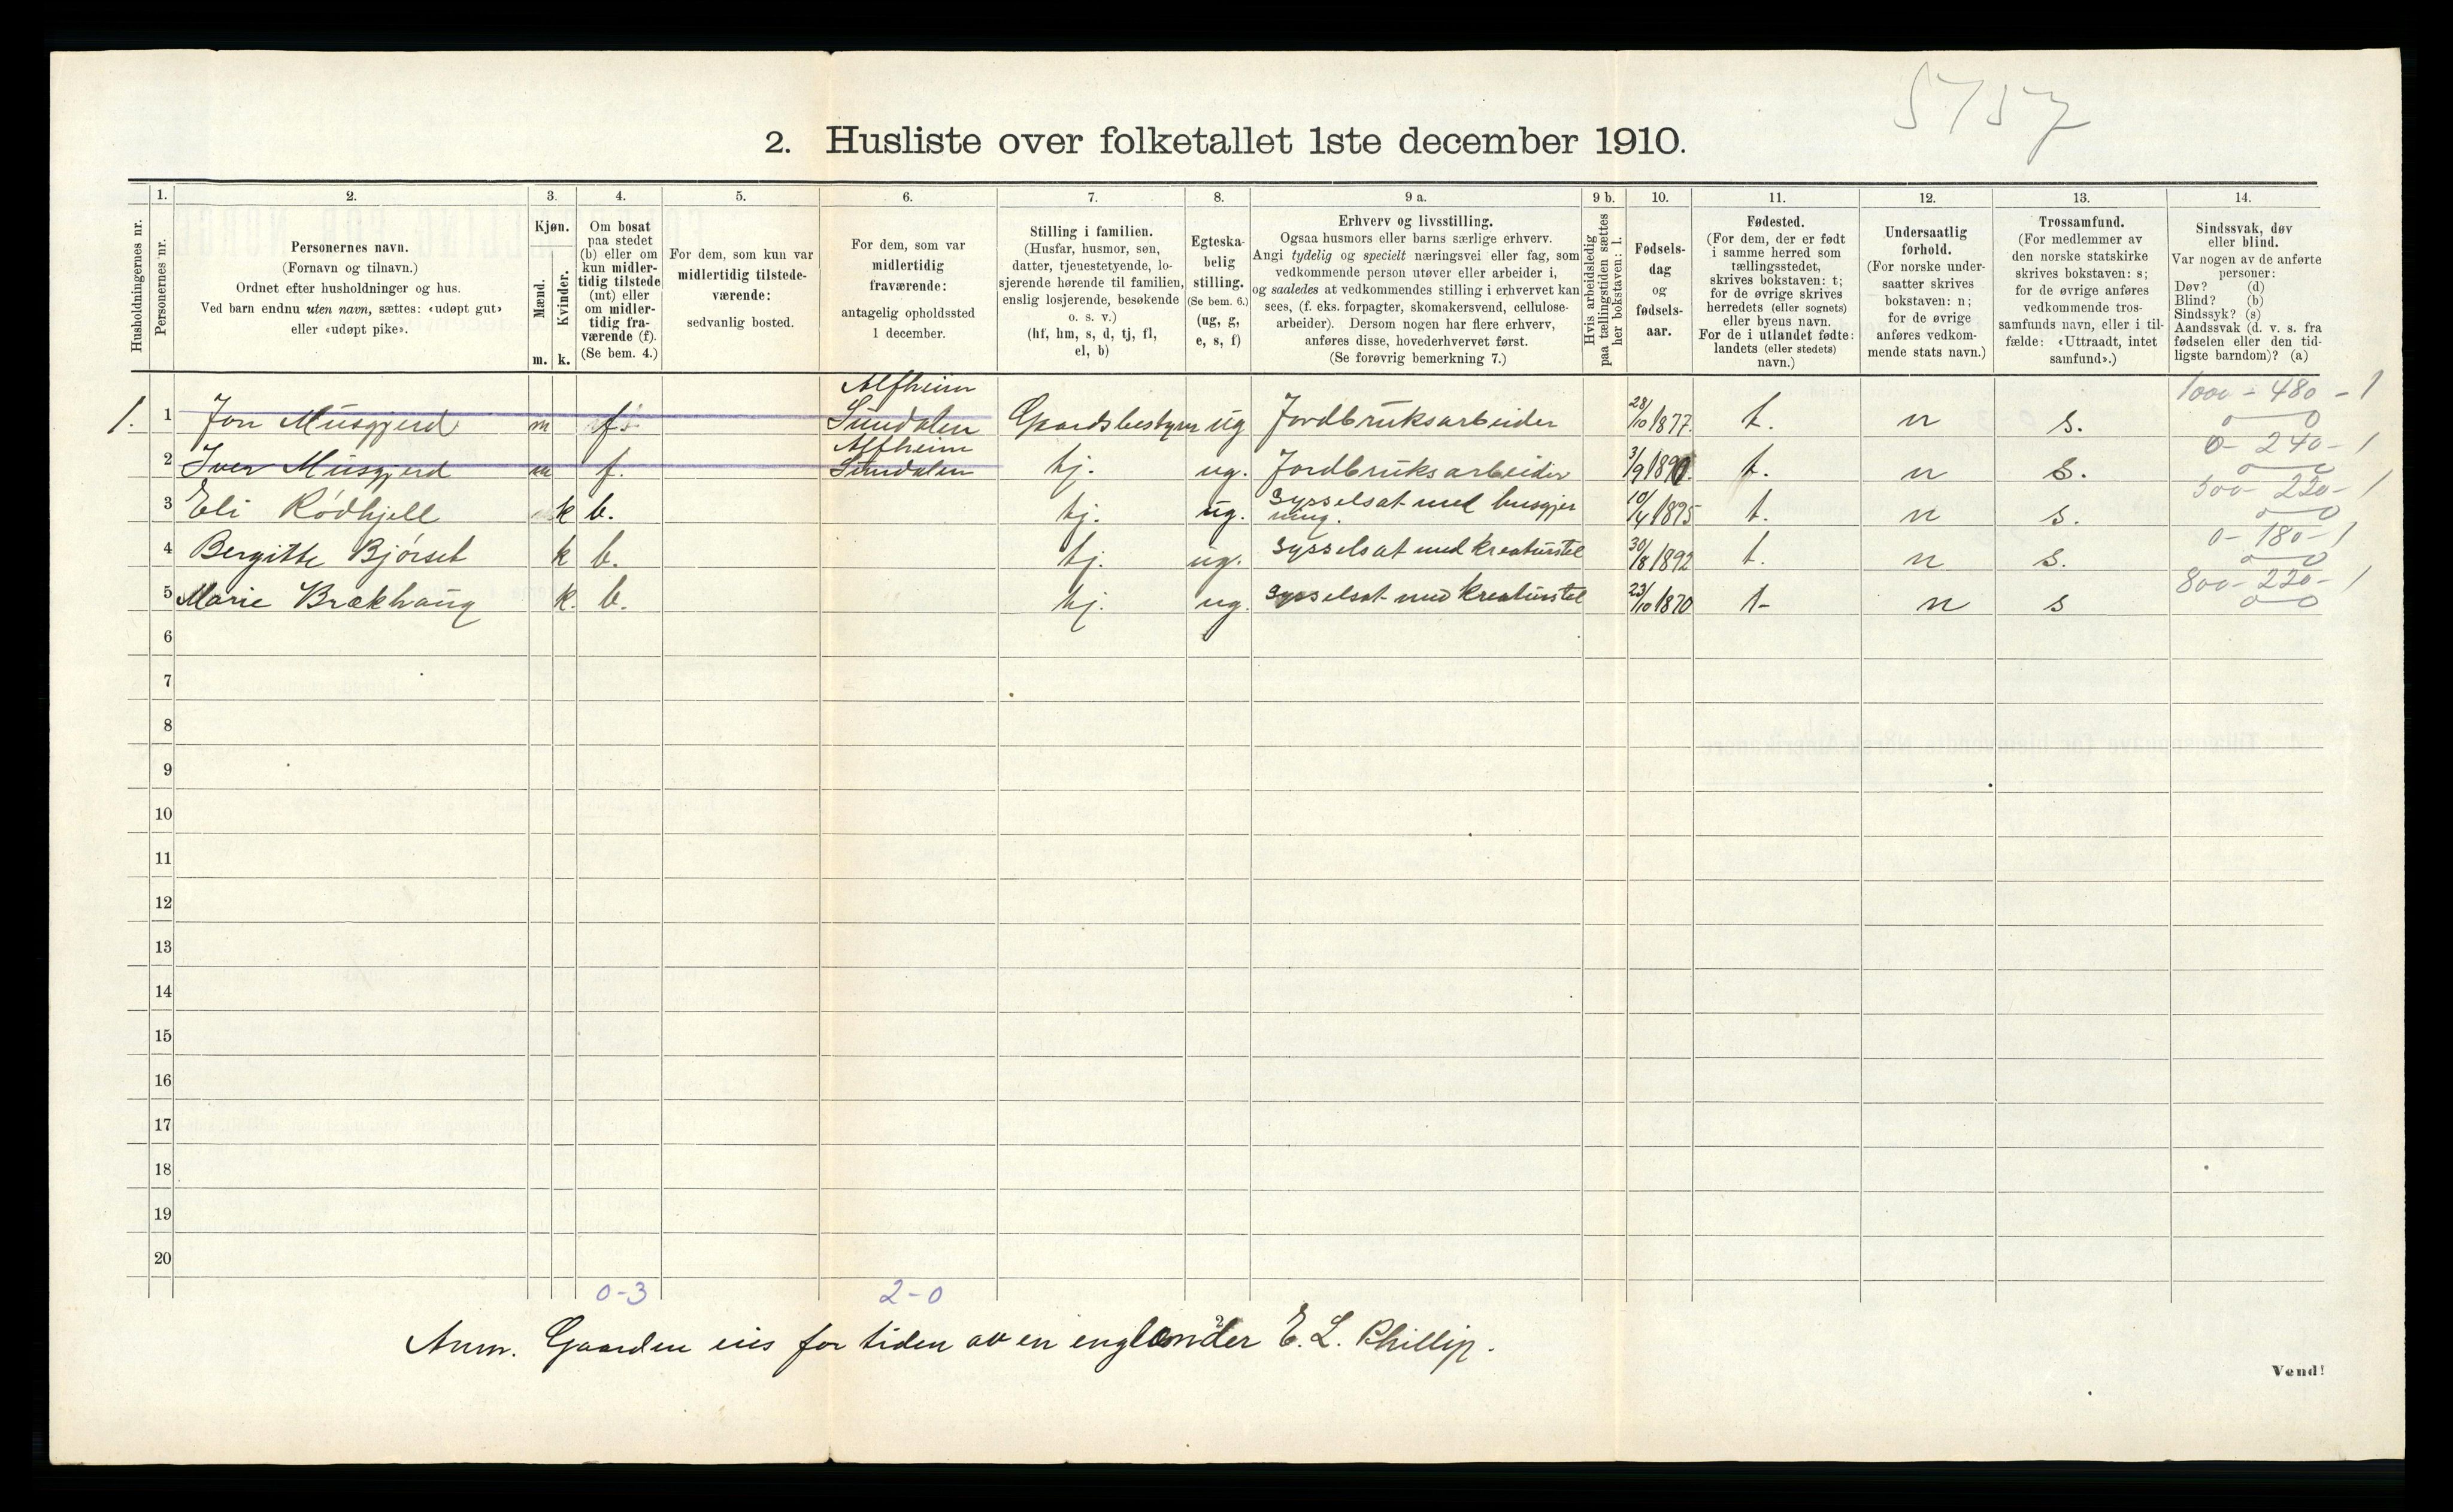 5757
2. Husliste over folketallet 1ste december 1910.
Husholdningernes nr.
1.
Personernes nr.
2.
Personernes navn.
(Fornavn og tilnavn.)
Ordnet efter husholdninger og hus.
Ved barn endnu uten navn, sættes: «udøpt gut»
eller «udøpt pike».
3.
Kjøn.
Mænd.
Kvinder.
m. k.
4.
Om bosat
paa stedet
(b) eller om
kun midler-
tidig tilstede
(mt) eller
om midler-
tidig fra-
værende (f).
(Se bem. 4.)
5.
For dem, som kun var
midlertidig tilstede-
værende:
sedvanlig bosted.
6.
For dem, som var
midlertidig
fraværende:
antagelig opholdssted
1 december.
7.
Stilling i familien.
(Husfar, husmor, søn,
datter, tjenestetyende, lo-
sjerende hørende til familien,
enslig losjerende, besøkende
o. s. v.)
(hf, hm, s, d, tj, fl,
el, b)
8.
Egteska-
belig
stilling.
(Se bem. 6.)
(ug, g,
e, s, f)
9 a.
Erhverv og livsstilling.
Ogsaa husmors eller barns særlige erhverv.
Angi tydelig og specielt næringsvei eller fag, som
vedkommende person utøver eller arbeider i,
og saaledes at vedkommendes stilling i erhvervet kan
sees, (f. eks. forpagter, skomakersvend, cellulose-
arbeider). Dersom nogen har flere erhverv,
anføres disse, hovederhvervet først.
(Se forøvrig bemerkning 7.)
9 b.
Hvis arbeidsledig
paa tællingstiden sættes
her bokstaven: l.
10.
Fødsels-
dag
og
fødsels-
aar.
11.
Fødested.
(For dem, der er født
i samme herred som
tællingsstedet,
skrives bokstaven: t;
for de øvrige skrives
herredets (eller sognets)
eller byens navn.
For de i utlandet fødte:
landets (eller stedets)
navn.)
12.
Undersaatlig
forhold.
(For norske under-
saatter skrives
bokstaven: n;
for de øvrige
anføres vedkom-
mende stats navn.)
13.
Trossamfund.
(For medlemmer av
den norske statskirke
skrives bokstaven: s;
for de øvrige anføres
vedkommende tros-
samfunds navn, eller i til-
fælde: «Uttraadt, intet
samfund».)
14.
Sindssvak, døv
eller blind.
Var nogen av de anførte
personer:
Døv? (d)
Blind? (b)
Sindssyk? (s)
Aandssvak (d. v. s. fra
fødselen eller den tid-
ligste barndom)? (a)
Alfheim 1000 - 480 - 1
1. 1 Jon Musgjerd m f. Sundalen Gaardsbestyrer ug Jordbruksarbeider 28/10 1877. t. n s. 0 0
Alfheim 0 - 240 - 1
2 Iver Musgjerd m f. Sundalen tj. ug. Jordbruksarbeider 3/9 1890. t. n s. 0 0
500 - 220 - 1
3 Eli Rödhjell k b. tj. ug. Sysselsat med husgjer
ning. 10/4 1895 t. n s. 0 0
0 - 180 - 1
4 Bergitte Bjørset k b. tj. ug. Sysselsat med kreaturstel 30/8 1892 t. n s. 0 0
800 - 220 - 1
5 Marie Brækhaug k. b. tj. ug. Sysselsat med kreaturstel 23/10 1870 t- n s 0 0
6
7
8
9
10
11
12
13
14
15
16
17
18
19
20
0-3 2-0
Anm. Gaarden eies for tiden av en englænder E. L. Phillip.
Vend!